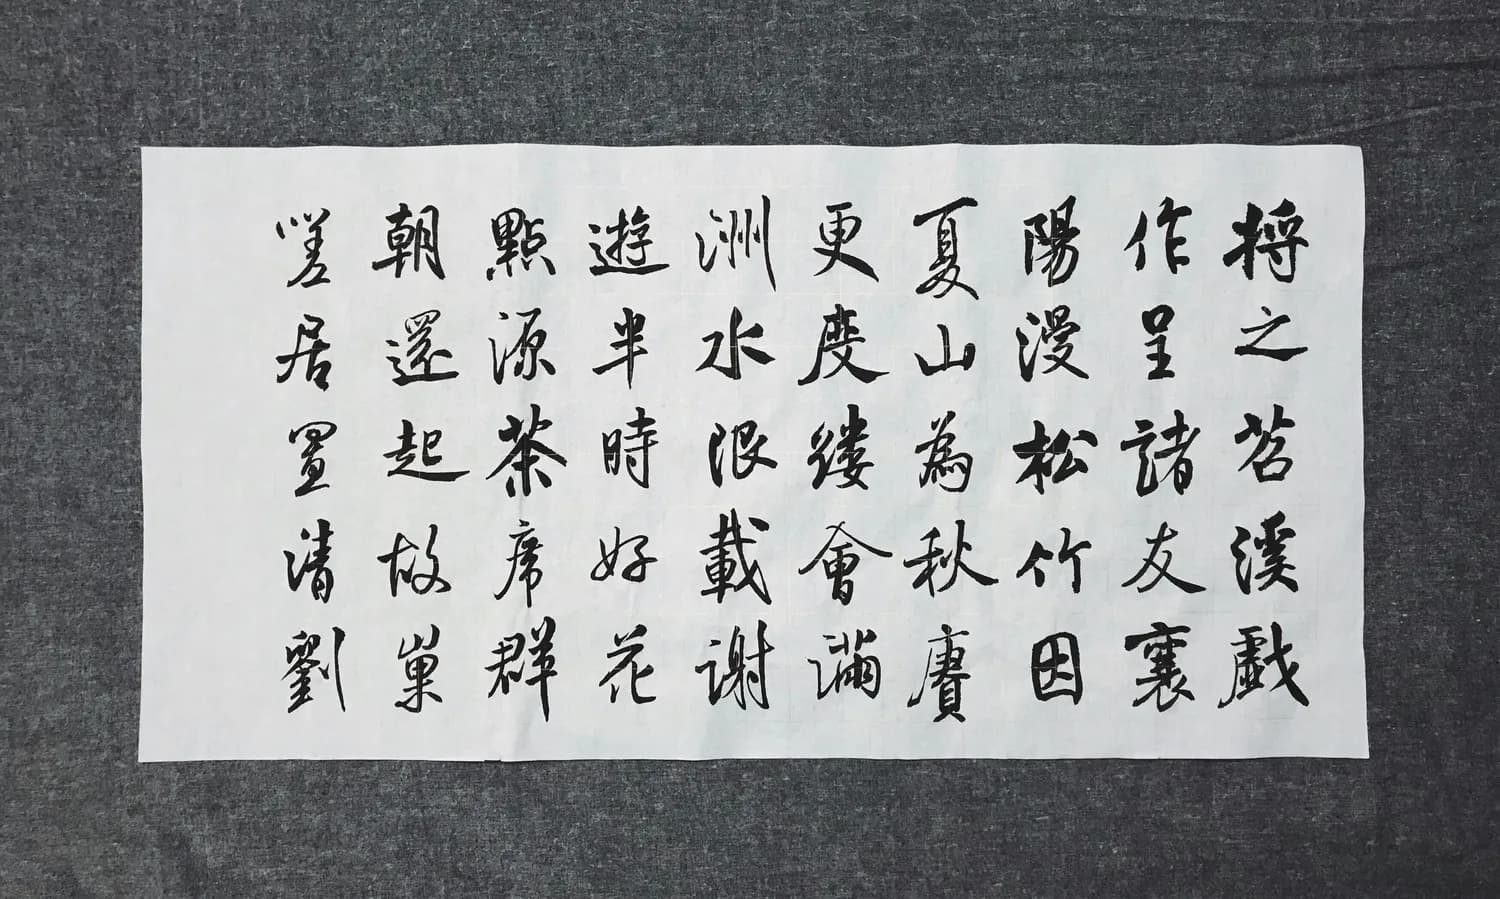 将之苕溪戯
作呈諸友襄
陽漫松竹因
夏山為秋賡
更度縷會滿
洲水限載謝
遊半時好花
點源茶席群
朝還起故巢
嗟居置清劉